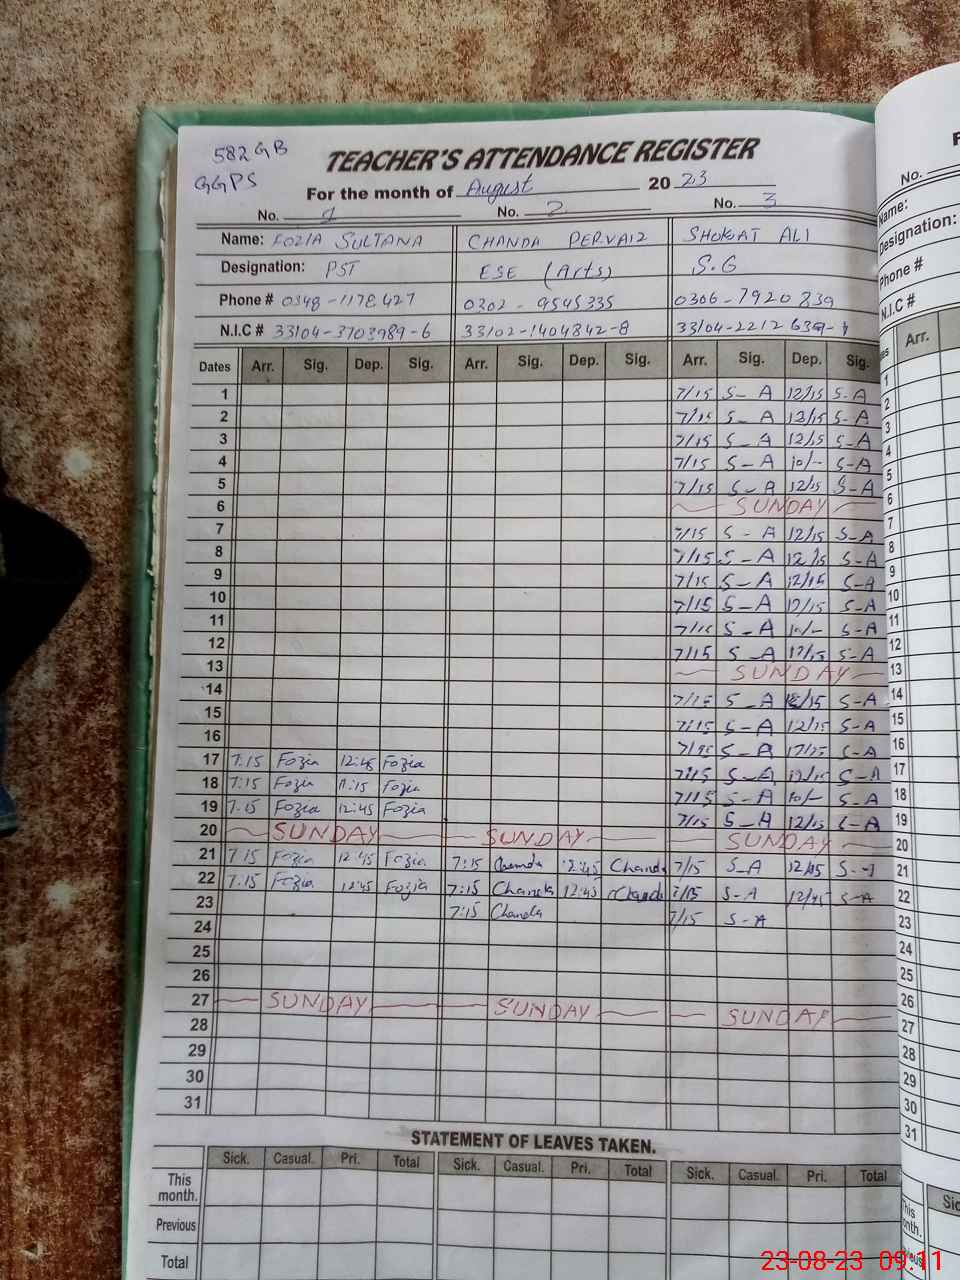 582 GB
GGPS
TEACHER'S ATTENDANCE REGISTER
For the month of August 2023
No. 1 No. 2 No. 3
Name: FOZIA SULTANA CHANDA PERVAIZ SHOKAT ALI
Designation: PST ESE (Arts) S.G
Phone # 0348-1178427 0302-9545335 0306-7920839
N.I.C # 33104-3703989-6 33102-1404842-8 33104-2212
Dates Arr. Sig. Dep. Sig. Arr. Sig. Dep. Sig. Arr. Sig. Dep. Sig.
1 7/15 S-A 12/15 S-A
2 7/15 S-A 12/15 S-A
3 7/15 S-A 12/15 S-A
4 7/15 S-A 10/- S-A
5 7/15 S-A 12/15 S-A
6 SUNDAY
7 7/15 S-A 12/15 S-A
8 7/15 S-A 12/15 S-A
9 7/15 S-A 12/15 S-A
10 7/15 S-A 12/15 S-A
11 7/15 S-A 10/- S-A
12 7/15 S-A 12/15 S-A
13 SUNDAY
14 7/15 S-A 12/15 S-A
15 7/15 S-A 12/15 S-A
16 7/15 S-A 12/15 S-A
17 7:15 Fozia 12:45 Fozia 7/15 S-A 12/15 S-A
18 7:15 Fozia 11:15 Fozia 7/15 S-A 10/- S-A
19 7:15 Fozia 12:45 Fozia 7/15 S-A 12/15 S-A
20 SUNDAY SUNDAY SUNDAY
21 7:15 Fozia 12:45 Fozia 7:15 Chanda 12:45 Chanda 7/15 S-A 12/45 S-A
22 7:15 Fozia 12:45 Fozia 7:15 Chanda 12:45 Chanda 7/15 S-A 12/45 S-A
23 7:15 Chanda 7/15 S-A
24
25
26
27 SUNDAY SUNDAY SUNDAY
28
29
30
31
STATEMENT OF LEAVES TAKEN.
Sick. Casual. Pri. Total Sick. Casual. Pri. Total Sick. Casual. Pri. Total
This month.
Previous
Total
No.
Name:
Designation:
Phone #
N.I.C #
Arr.
1
2
3
4
5
6
7
8
9
10
11
12
13
14
15
16
17
18
19
20
21
22
23
24
25
26
27
28
29
30
31
23-08-23 09:11